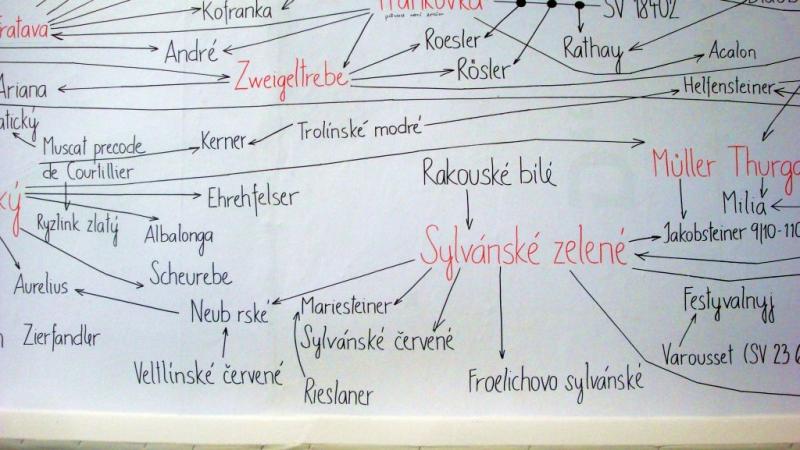 Kofranka
SV 18402
André
Roesler
Rathay
Acalon
Zweigeltrebe
Rösler
Ariana
Helfensteiner
Muscat precode
de Courtillier
Kerner
Trolínské modré
Müller
Rakouské bílé
Ehrehfelser
Milia
Ryzlink zlatý
Albalonga
Sylvánské zelené
Jakobsteiner 9/10-110
Scheurebe
Aurelius
Neub rské
Mariesteiner
Festyvalnyj
Zierfandler
Sylvánské červené
Varousset (SV 23
Veltlínské červené
Rieslaner
Froelichovo sylvánské